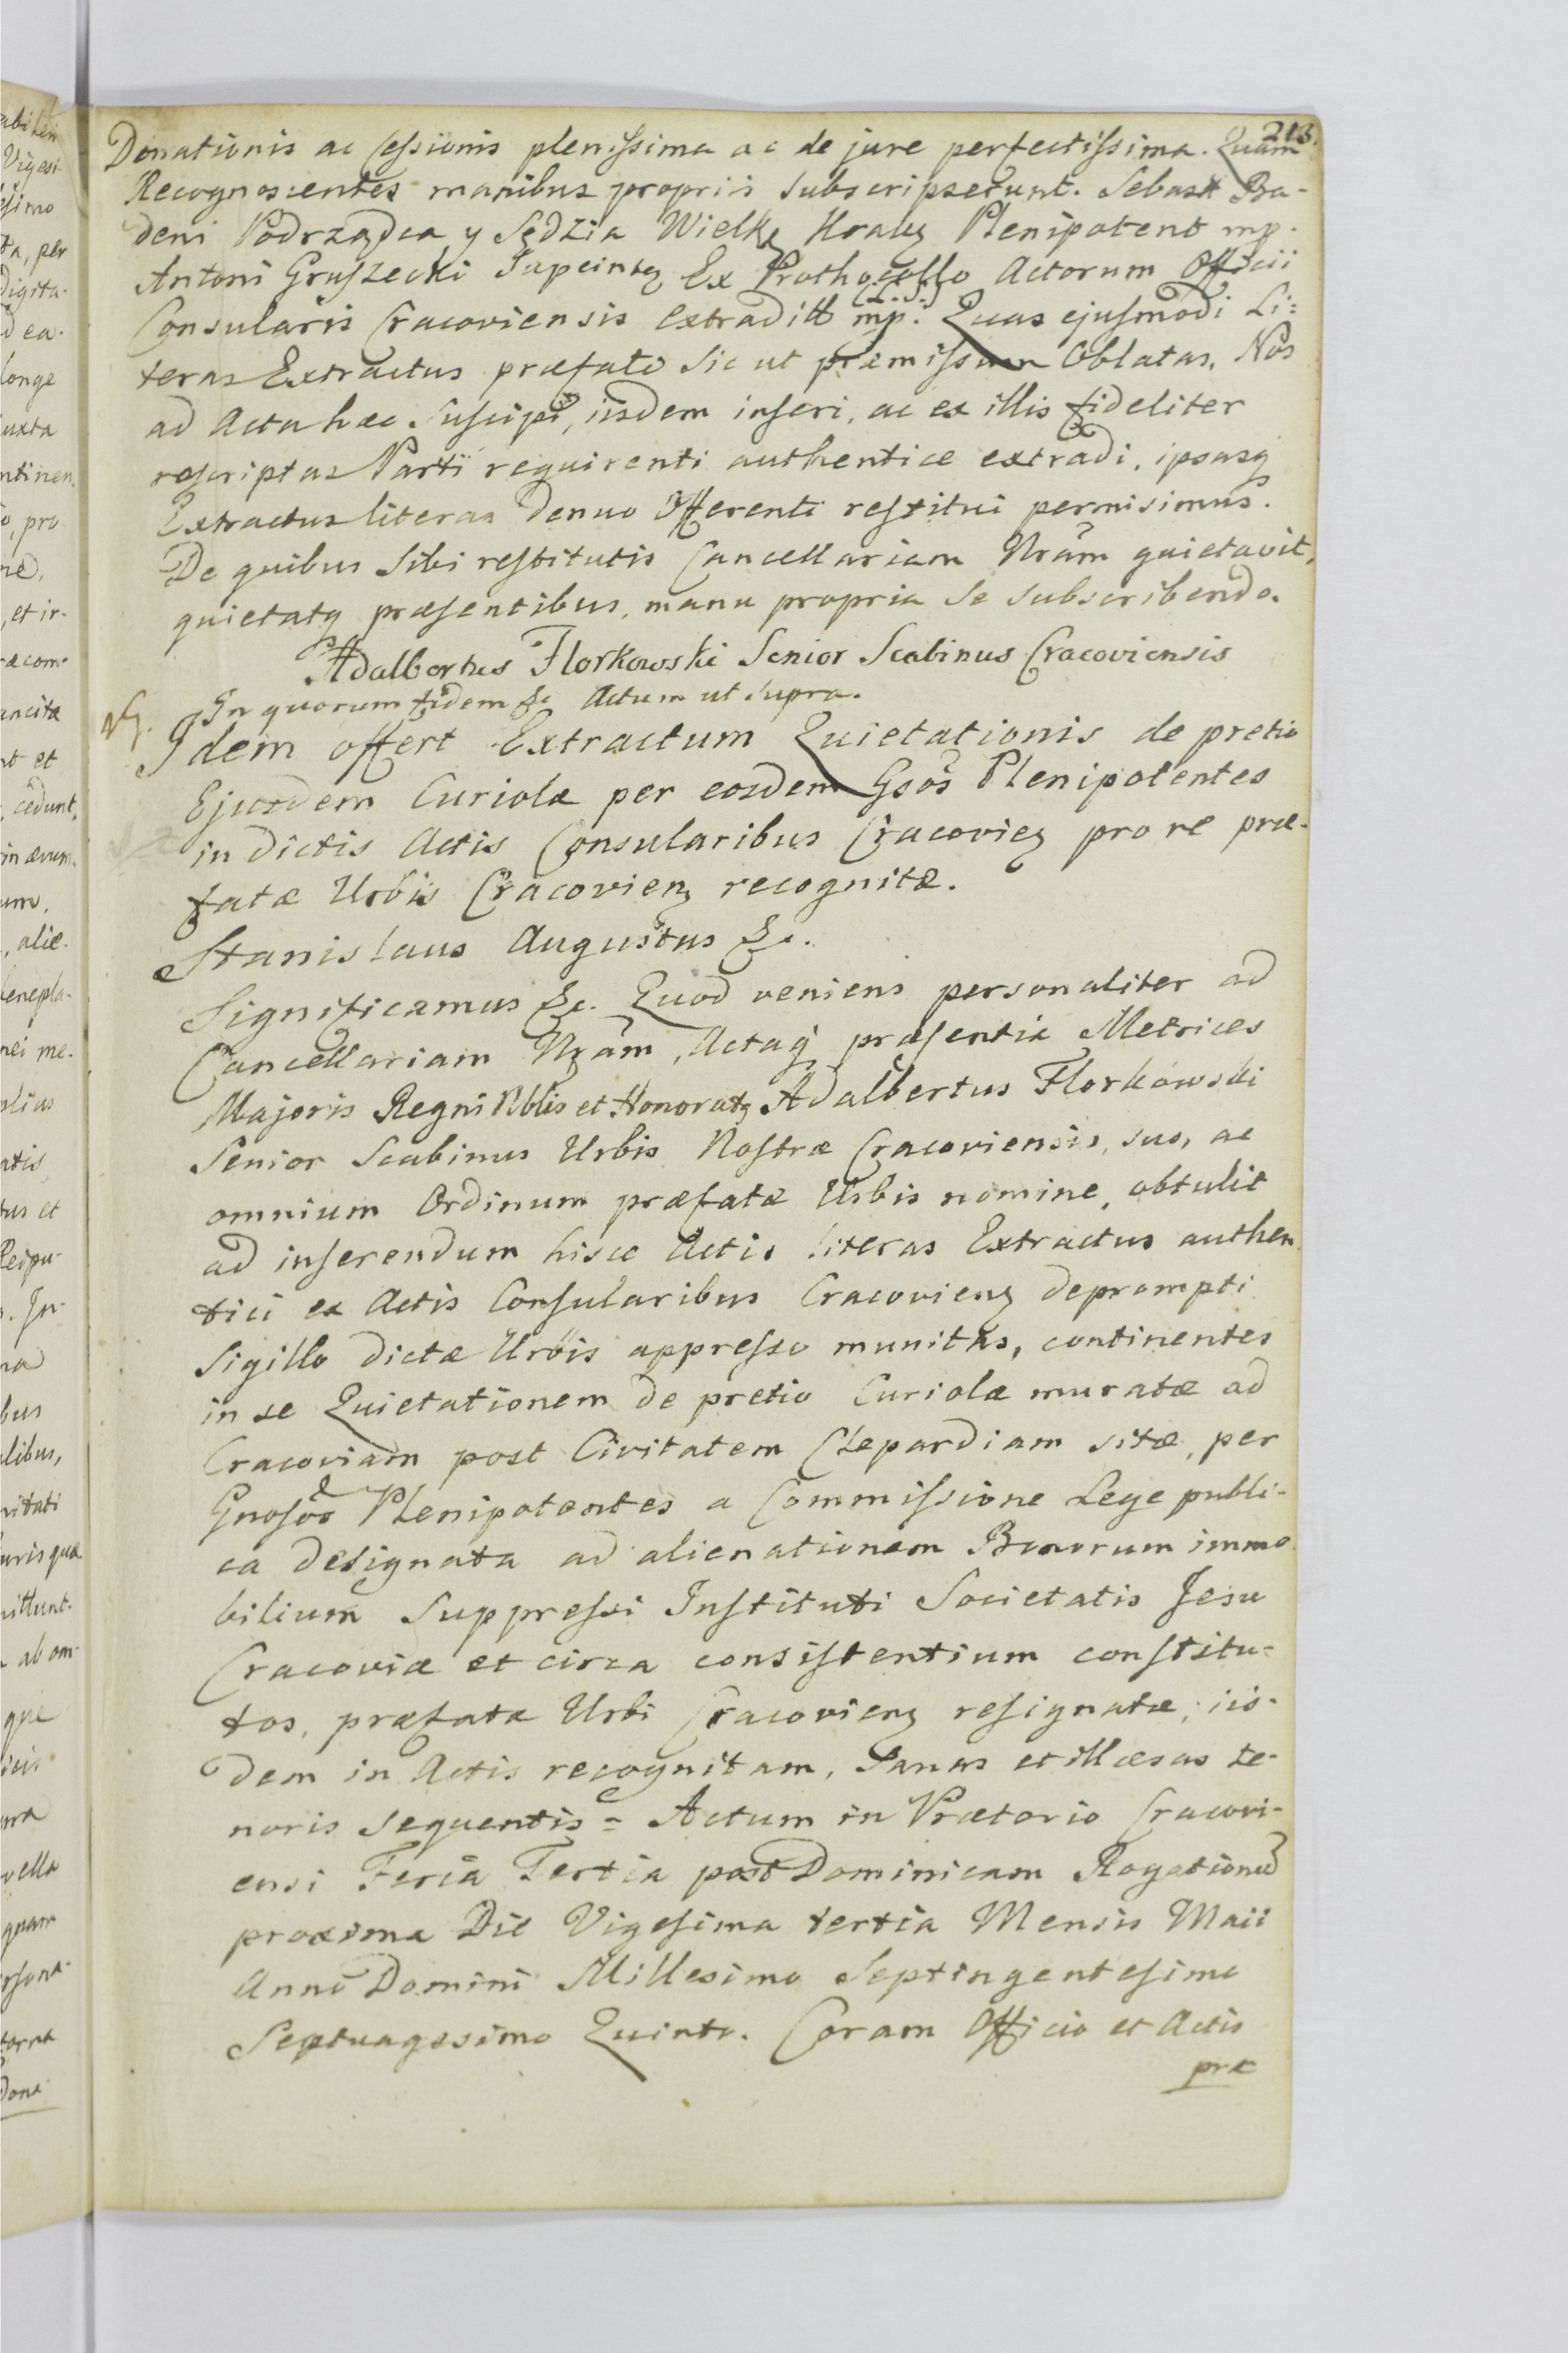 213.
Donationis ac Cessionis plenissima ac de jure perfectissima. Quam
Recognoscentes manibus propriis subscripserunt. Sebast Ba-
deni Podrządca y Sędzia Wielkz Krakz Plenipotent mp.
Antoni Gruszecki Ex Prothocollo Actorum Officii
(L.S.)
Consularis Cracoviensis extraditt mp. Quas ejusmodi Li:
teras Extractus præfati sic ut præmissum Oblatas, Nos
ad Acta hæc suscipi, iisdem inseri, ac ex illis fideliter
rescriptas Parti requirenti authentice extradi, ipsasq
Extractus literas denuo Offerenti restitui permisimus.
De quibus sibi restitutis Cancellariam Nram quietavit,
quietatq præsentibus, manu propria se subscribendo.
Adalbertus Florkowski Senior Scabinus Cracoviensis
In quorum fidem &c Actum ut supra.
Idem offert Extractum Quietationis de pretio
Ejusdem Curiolæ per eosdem Gsos Plenipotentes
in dictis Actis Consularibus Cracovienz pro re præ-
fatæ Urbis Cracovienz recognitæ.
Stanislaus Augustus &c.
Significamus &c. Quod veniens personaliter ad
Cancellariam Nram, Actaq præsentia Metrices
Majoris Regni Nblis et Honoratz Adalbertus Florkowski
Senior Scabinus Urbis Nostræ Cracoviensis, suo, ac
omnium Ordinum præfatæ Urbis nomine, obtulit
ad inserendum hisce Actis literas Extractus authen
tici ex Actis Consularibus Cracovienz deprompti
Sigillo dictæ Urbis appresso munitas, continentes
in se Quietationem de pretio Curiolæ muratæ ad
Cracoviam post Civitatem Clepardiam sitæ, per
Gnosos Plenipotentes a Commissione Lege publi-
ca designata ad alienationem Bonorum immo
bilium Suppressi Instituti Societatis Jesu
Cracoviæ et circa consistentium constitu-
tos, præfatæ Urbi Cracovienz resignatæ, iis-
dem in Actis recognitam, Sanas et illæsas te-
noris sequentis = Actum in Prætorio Cracovi-
ensi Feria Tertia post Dominicam Rogationu
proxima Die Vigesima tertia Mensis Maii
Anno Domini Millesimo Septingentesimo
Septuagesimo Quinto. Coram Officio et Actis
præ